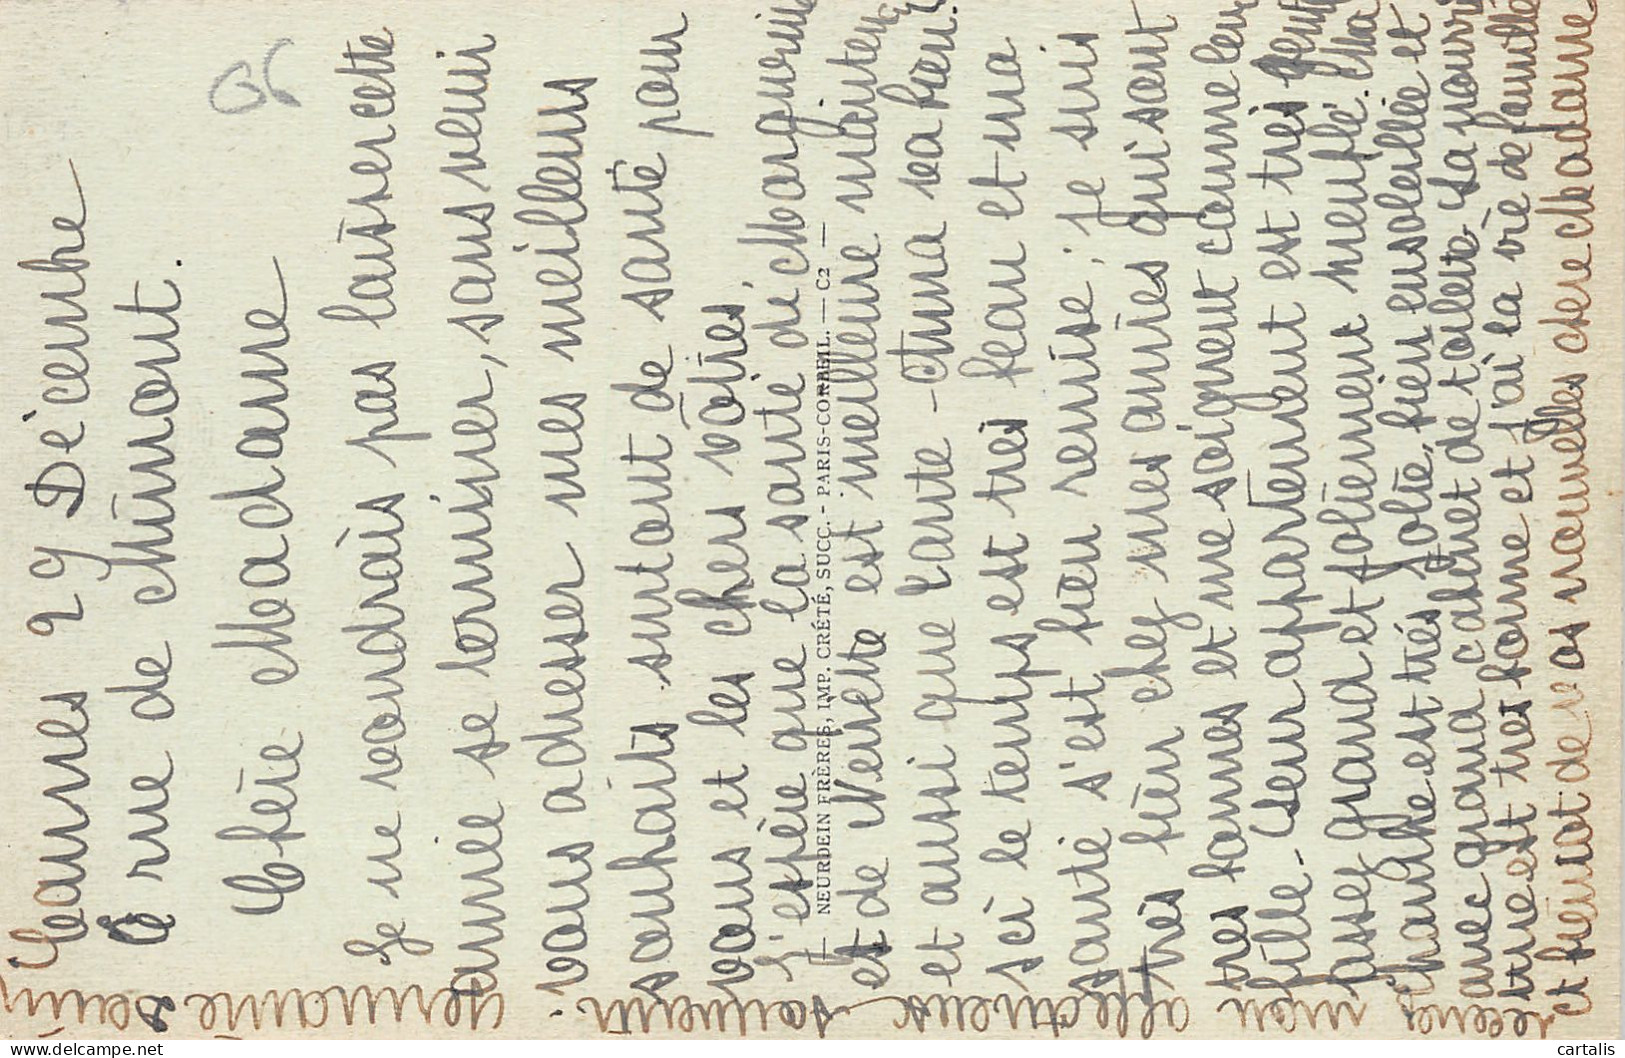 Cannes 29 Décembre
6 rue de Chûmont.
Chère Madame
Je ne voudrais pas laisser cette
année se terminer, sans venir
vous adresser mes meilleurs
souhaits surtout de santé pour
vous et les chers vôtres,
J'espère que la santé de Marguerite
et de Ninette est meilleure maintenant
et aussi que tante Anna va bien.
Ici le temps est très beau et ma
santé s'est bien remise ; je suis
très bien chez mes amies qui sont
très bonnes et me soignent comme leur
fille. Leur appartement est très
assez grand et joliement meublé. Ma
chambre est très jolie, bien ensoleillée et
avec grand cabinet de toilette. La nourri
ture est très bonne et j'ai la vie de famille
et bientôt de vos nouvelles chère Madame
recevez mon affectueux souvenir.
Germaine
NEURDEIN FRÈRES, IMP. CRÉTÉ, SUCC. - PARIS-CORBEIL. — C2 —
www.delcampe.net
cartalis